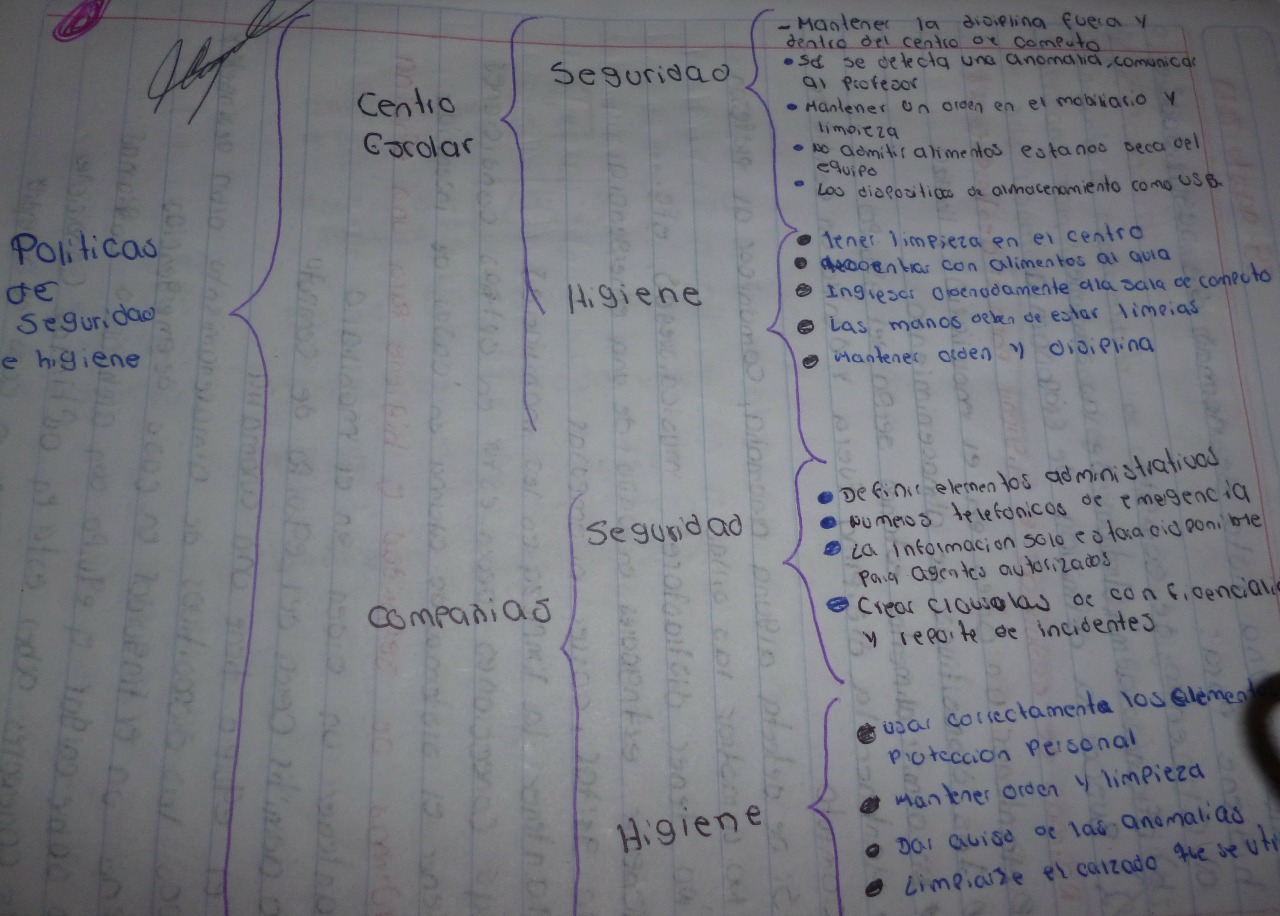 Politicas
de
Seguridad
e higiene
Centro
Escolar
Seguridad
- Mantener la disiplina fuera y
dentro del centro de computo
• Si se detecta una anomalia, comunicar
al profesor
• Mantener un orden en el mobiliario y
limpieza
• No admitir alimentos estando serca del
equipo
• Los dispositivos de almacenamiento como USB
Higiene
• Tener limpieza en el centro
• con alimentos al aula
• Ingresar ordenadamente ala sala de computo
• Las manos deben de estar limpias
• Mantener orden y disiplina
Compañias
Seguridad
• Definir elementos administrativos
• Numeros telefonicos de emegencia
• La informacion solo estara disponible
para agentes autorizados
• Crear clausulas de confidenciali
y reporte de incidentes
Higiene
• Usar correctamente los element
Proteccion Personal
• Mantener orden y limpieza
• Dar aviso de las anomalias
• Limpiarse el calzado que se uti